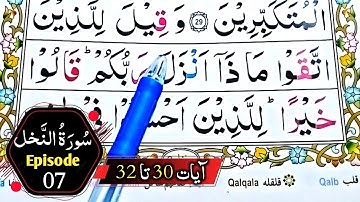 الْمُتَكَبِّرِيْنَ 29 وَقِيْلَ لِلَّذِيْنَ
اتَّقَوْا مَاذَاۤ اَنْزَلَ رَبُّكُمْ قَالُوْا
خَيْرًا لِلَّذِيْنَ اَحْسَنُوْا فِيْ
سُورَةُ النَّحل
Episode
07
آیات 30 تا 32
Qalqala قلقله
Qalb قلب